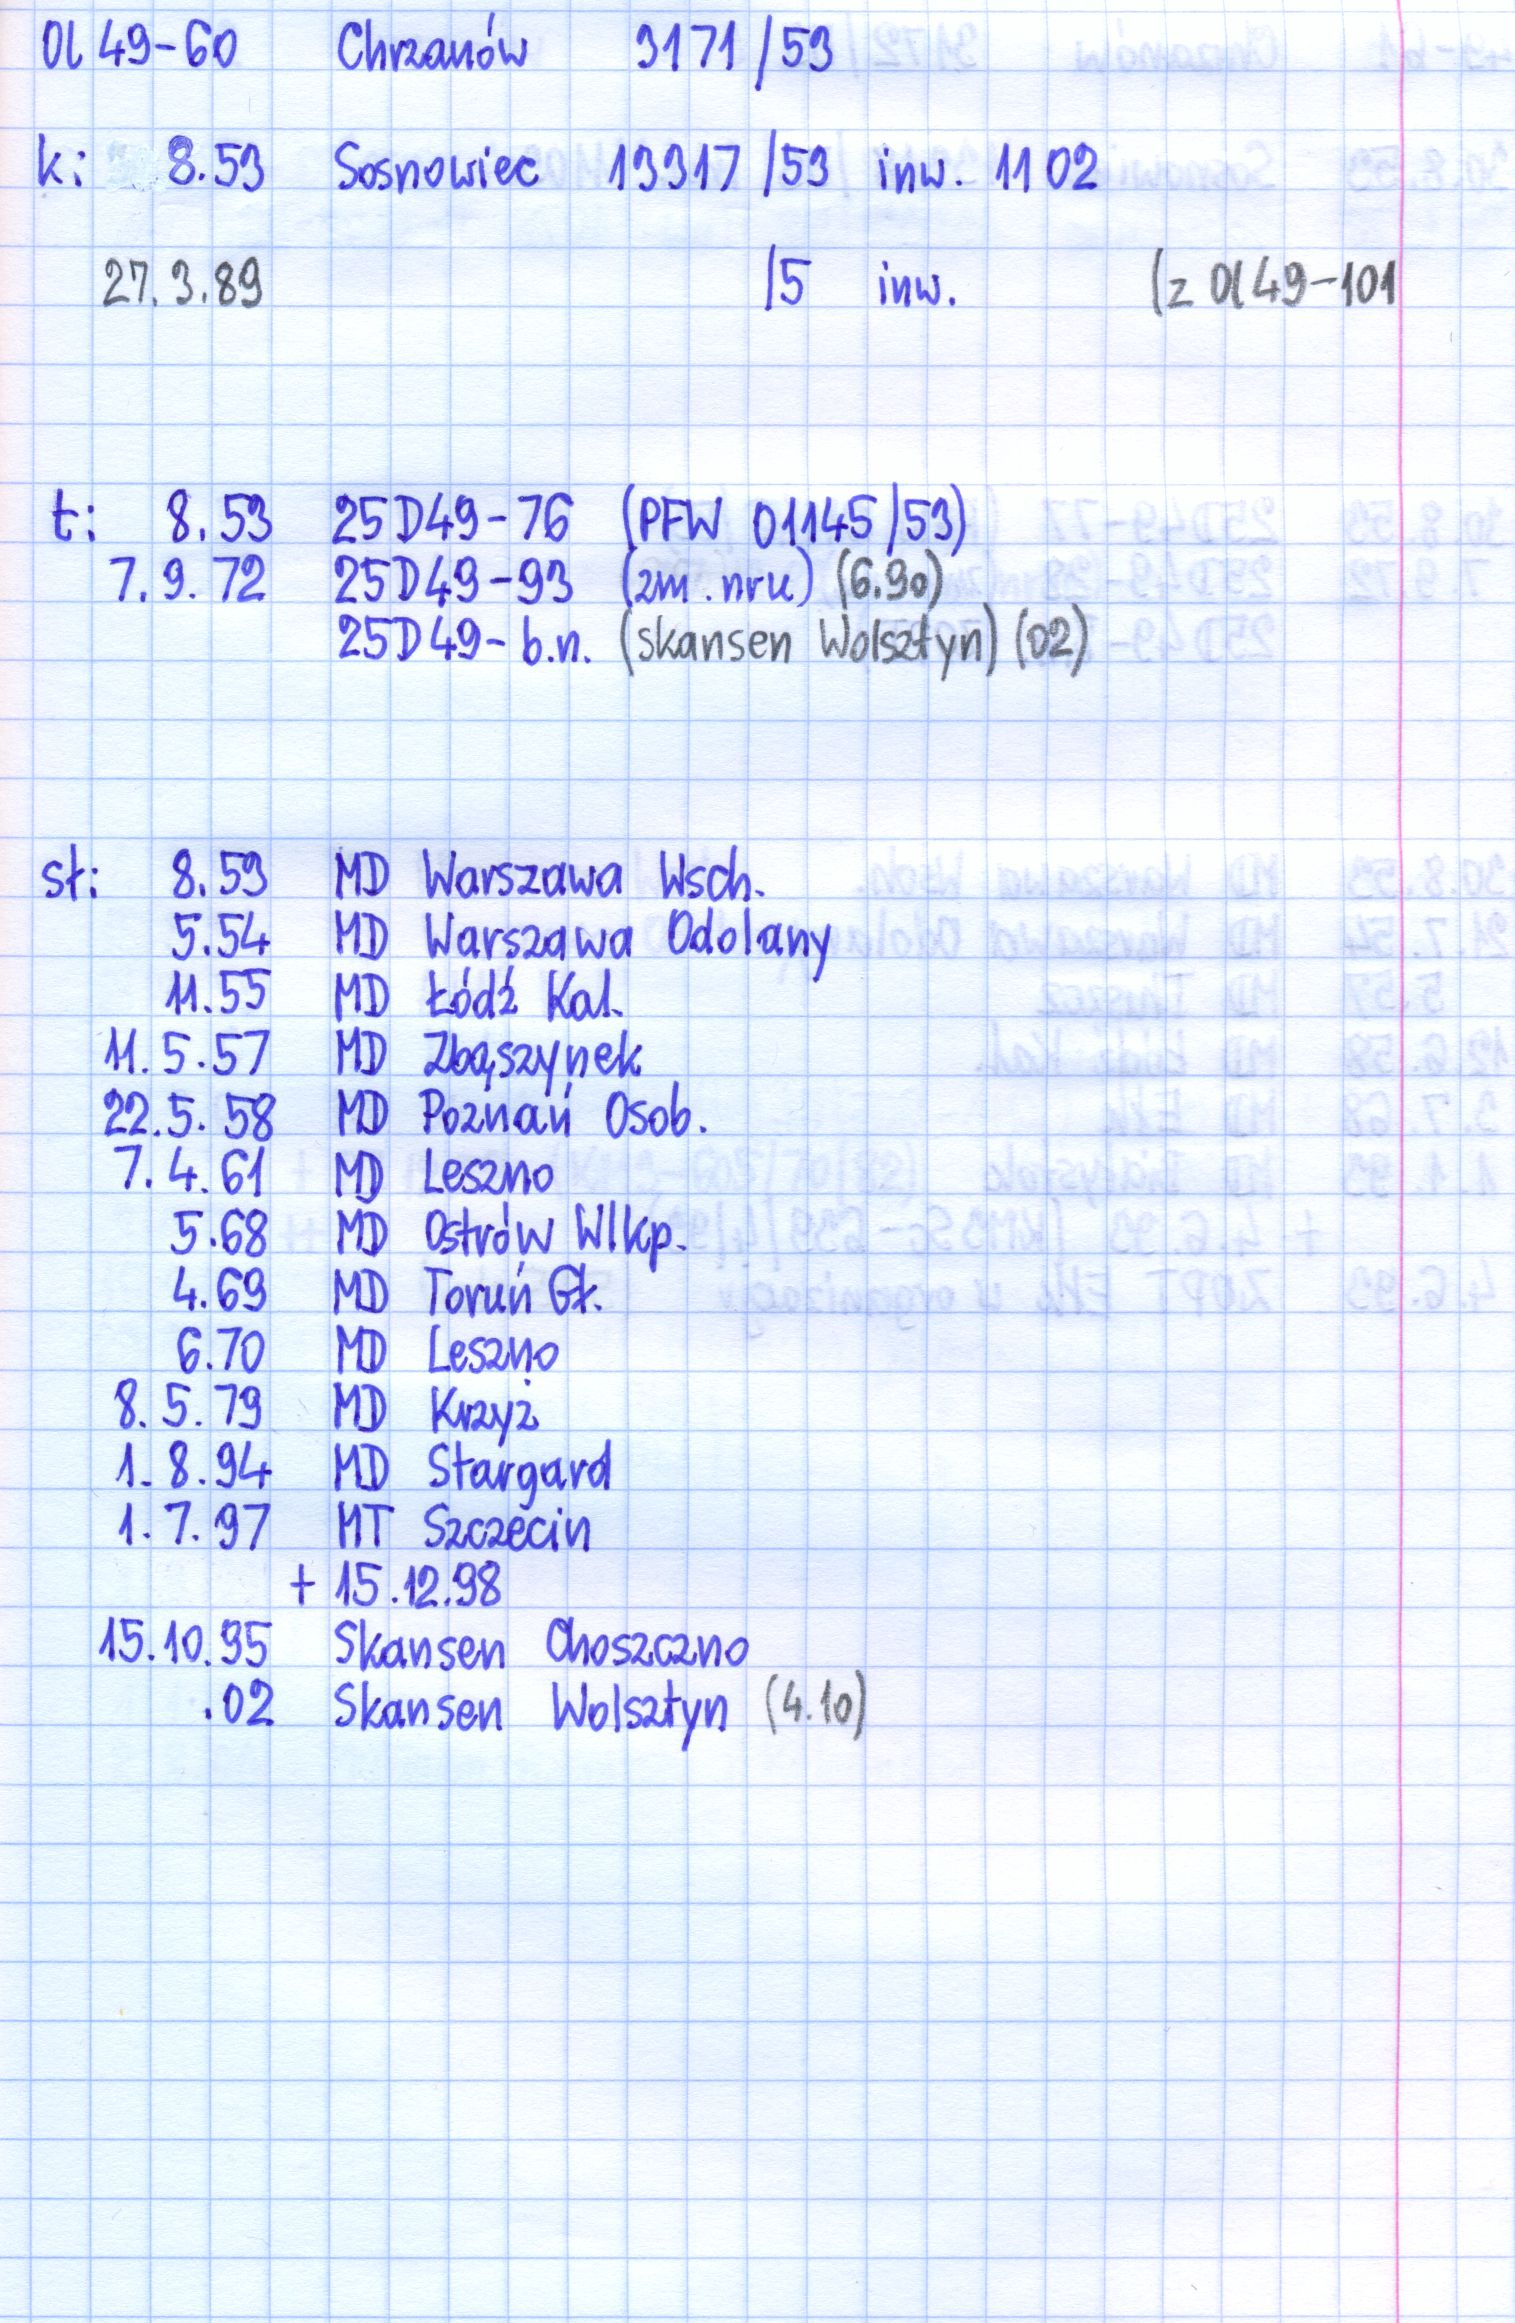 Ol 49-60 Chrzanów 3171/53
k: 8.53 Sosnowiec 13317/53 inw. 1102
27.3.89 /5 inw. (z Ol49-101
t: 8.53 25D49-76 (PFW 01145/53)
7.9.72 25D49-93 (zm. nru) (6.90)
25D49-b.n. (skansen Wolsztyn) (02)
sł: 8.53 MD Warszawa Wsch.
5.54 MD Warszawa Odolany
11.55 MD Łódź Kal.
11.5.57 MD Zbąszynek
22.5.58 MD Poznań Osob.
7.4.61 MD Leszno
5.68 MD Ostrów Wlkp.
4.69 MD Toruń Gł.
6.70 MD Leszno
8.5.79 MD Krzyż
1.8.94 MD Stargard
1.7.97 MT Szczecin
+ 15.12.98
15.10.95 Skansen Choszczno
.02 Skansen Wolsztyn (4.10)